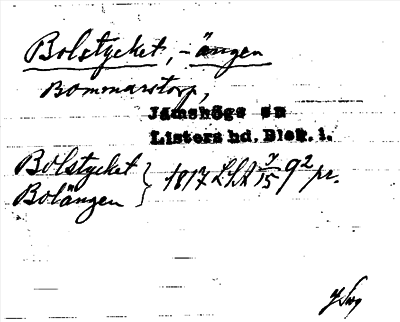 Bolstycket, -ängen
Bommarstorp,
Jämshögs sn
Listers hd. Blek. l.
Bolstycket
Bolängen } 1817 LSA 15 9² pr.